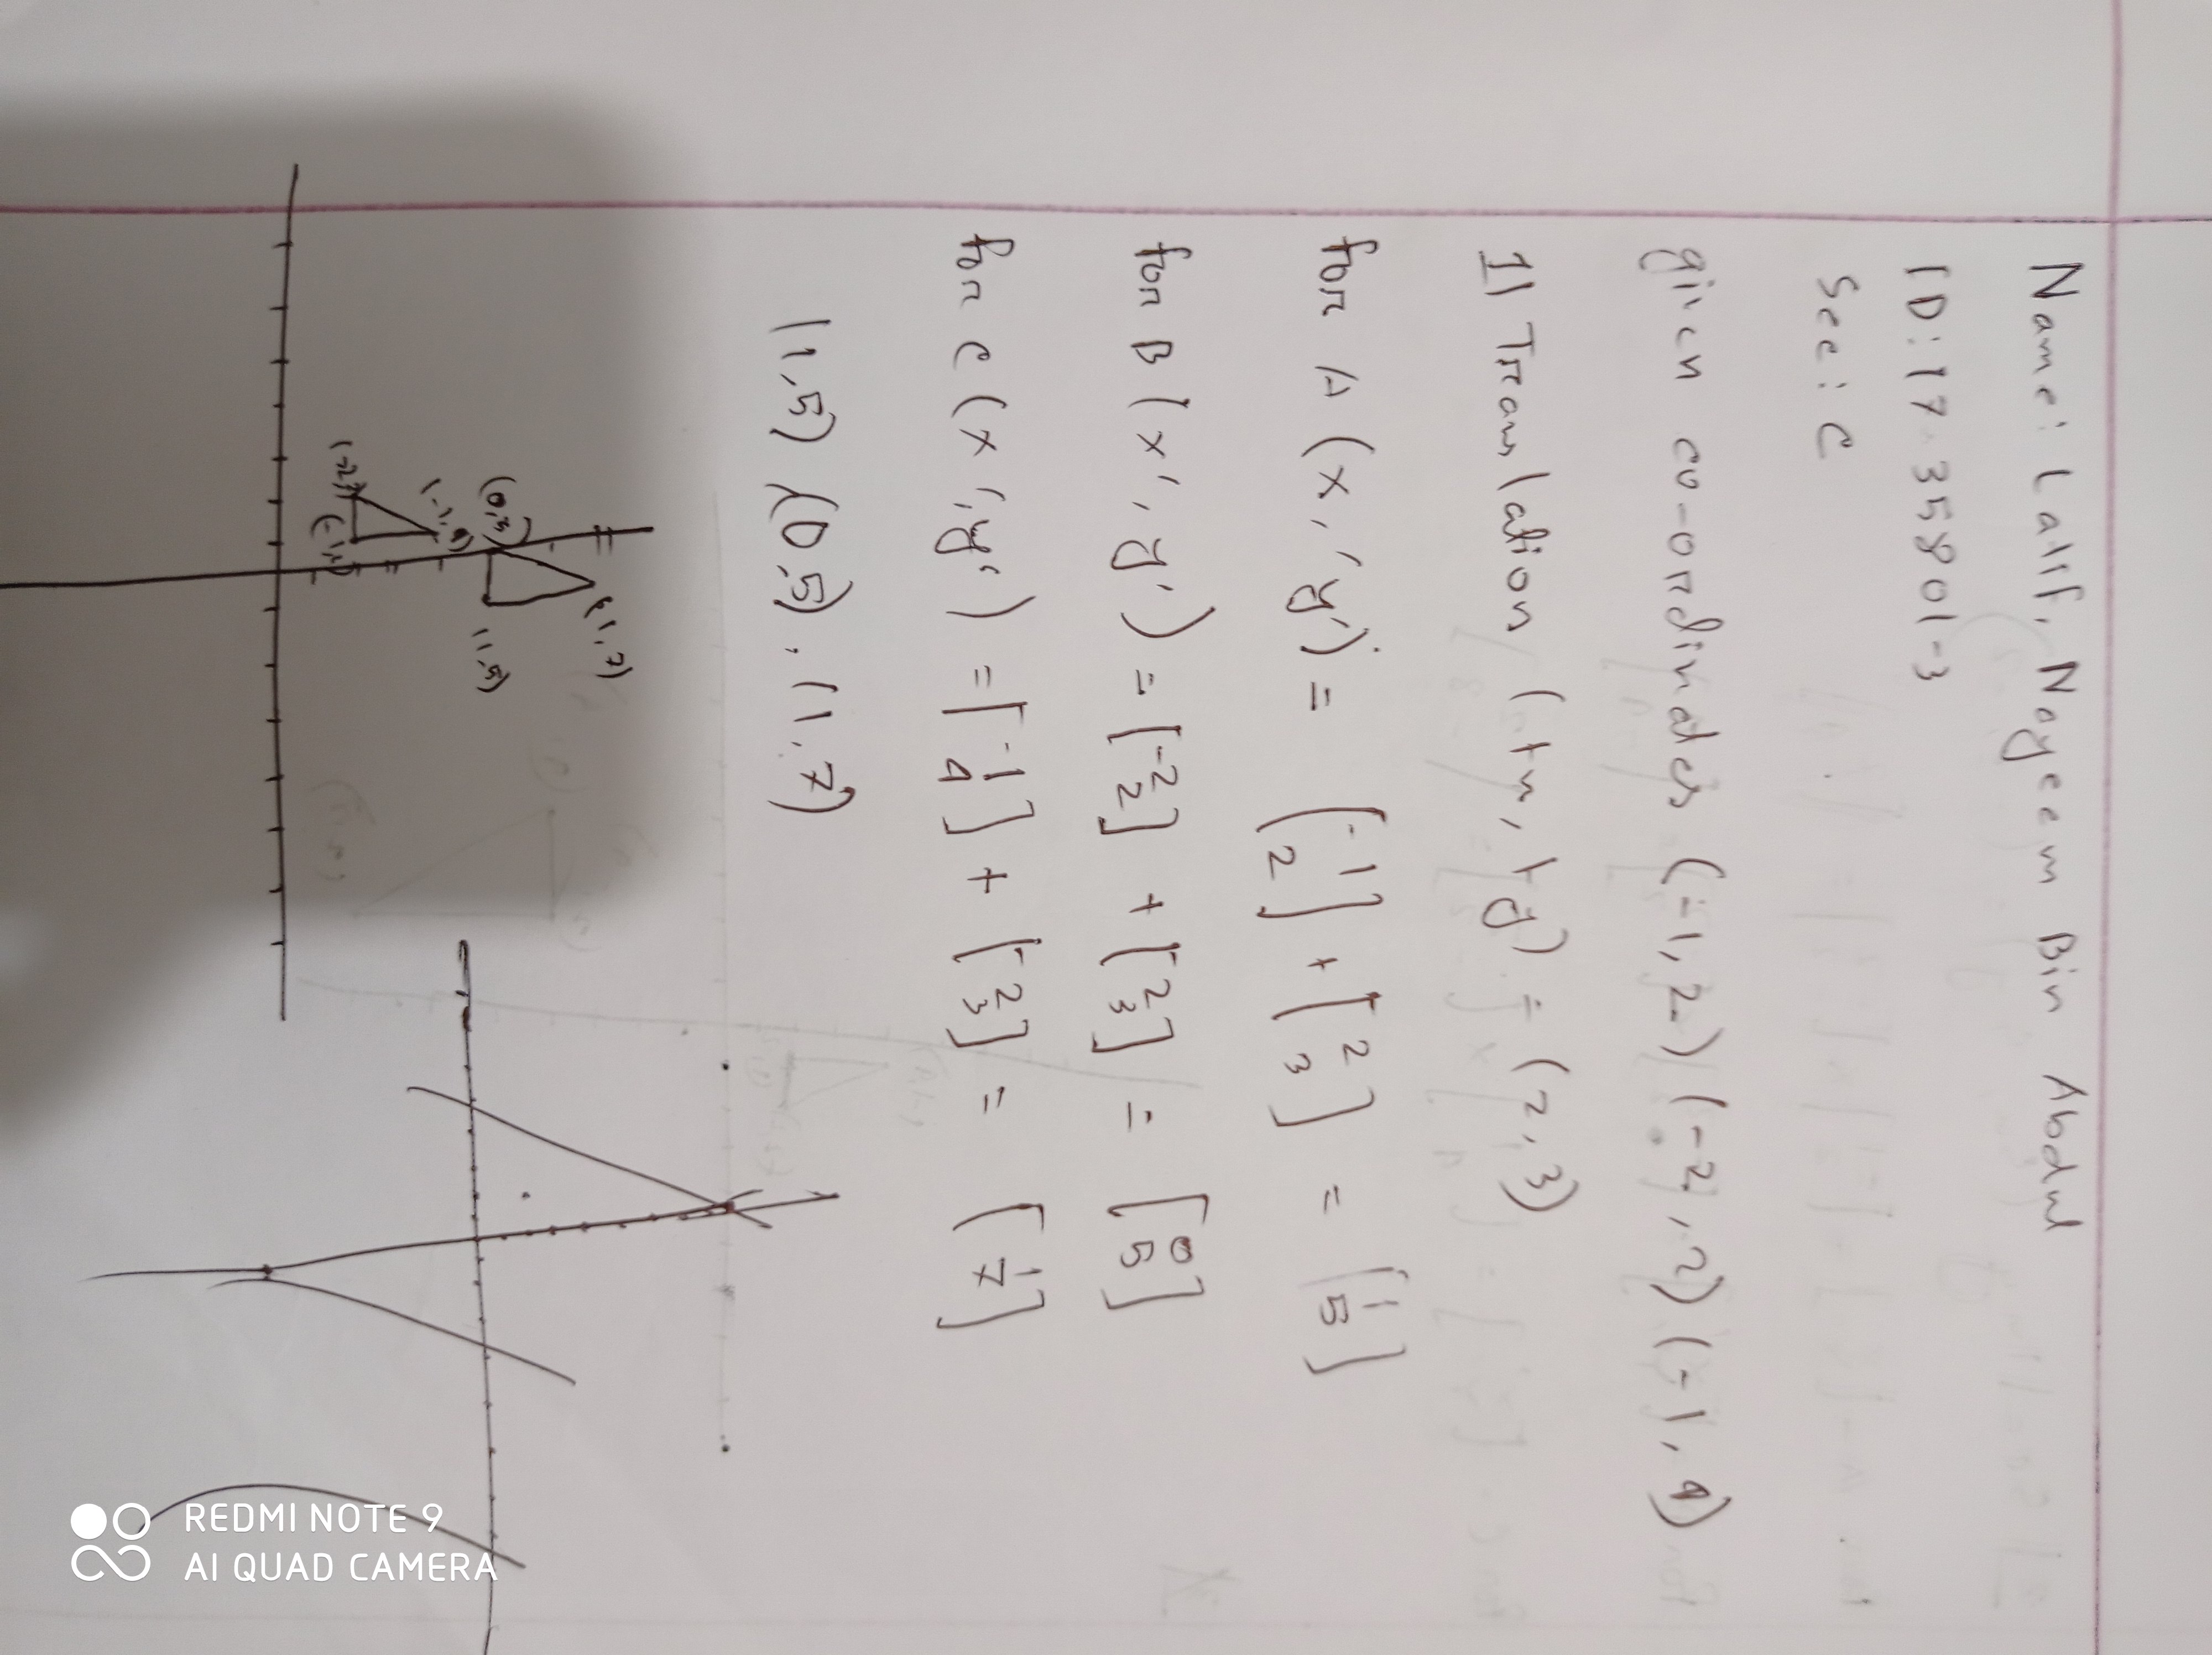 Name: Latif, Nayeem Bin Abdul
ID: 17-35801-3
Sec: C
given co-ordinates (-1, 2) (-2, 2) (-1, 4)
1) Translation (tx, ty) = (2, 3)
for A (x', y') = [-1 2] + [2 3] = [1 5]
for B (x', y') = [-2 2] + [2 3] = [0 5]
for C (x', y') = [-1 4] + [2 3] = [1 7]
(1, 5) (0, 5), (1, 7)
(1, 7)
(1, 5)
REDMI NOTE 9
AI QUAD CAMERA